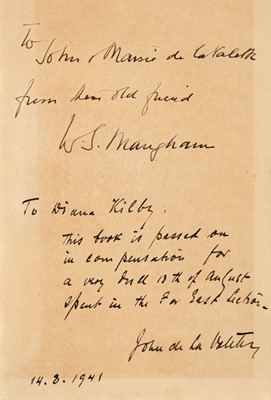 To
John & Maisie de la Valette
from their old friend
W. S. Maugham
To Diana Kilby,
This book is passed on
in compensation for
a very dull 13th of August
Spent in the Far East Section.
John de la Valette
14.8.1941